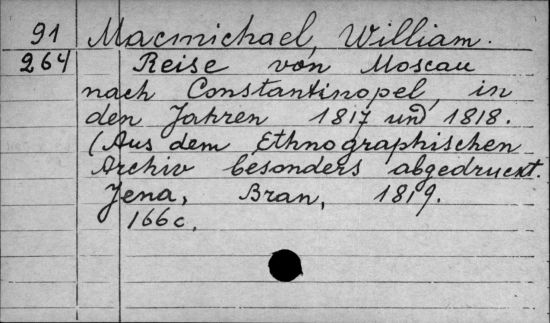 91 Macmichael, William.
264 Reise von Moscau
nach Constantinopel, in
den Jahren 1817 und 1818.
(Aus dem Ethnographischen
Archiv besonders abgedruckt.
Jena, Bran, 1819.
166 c.